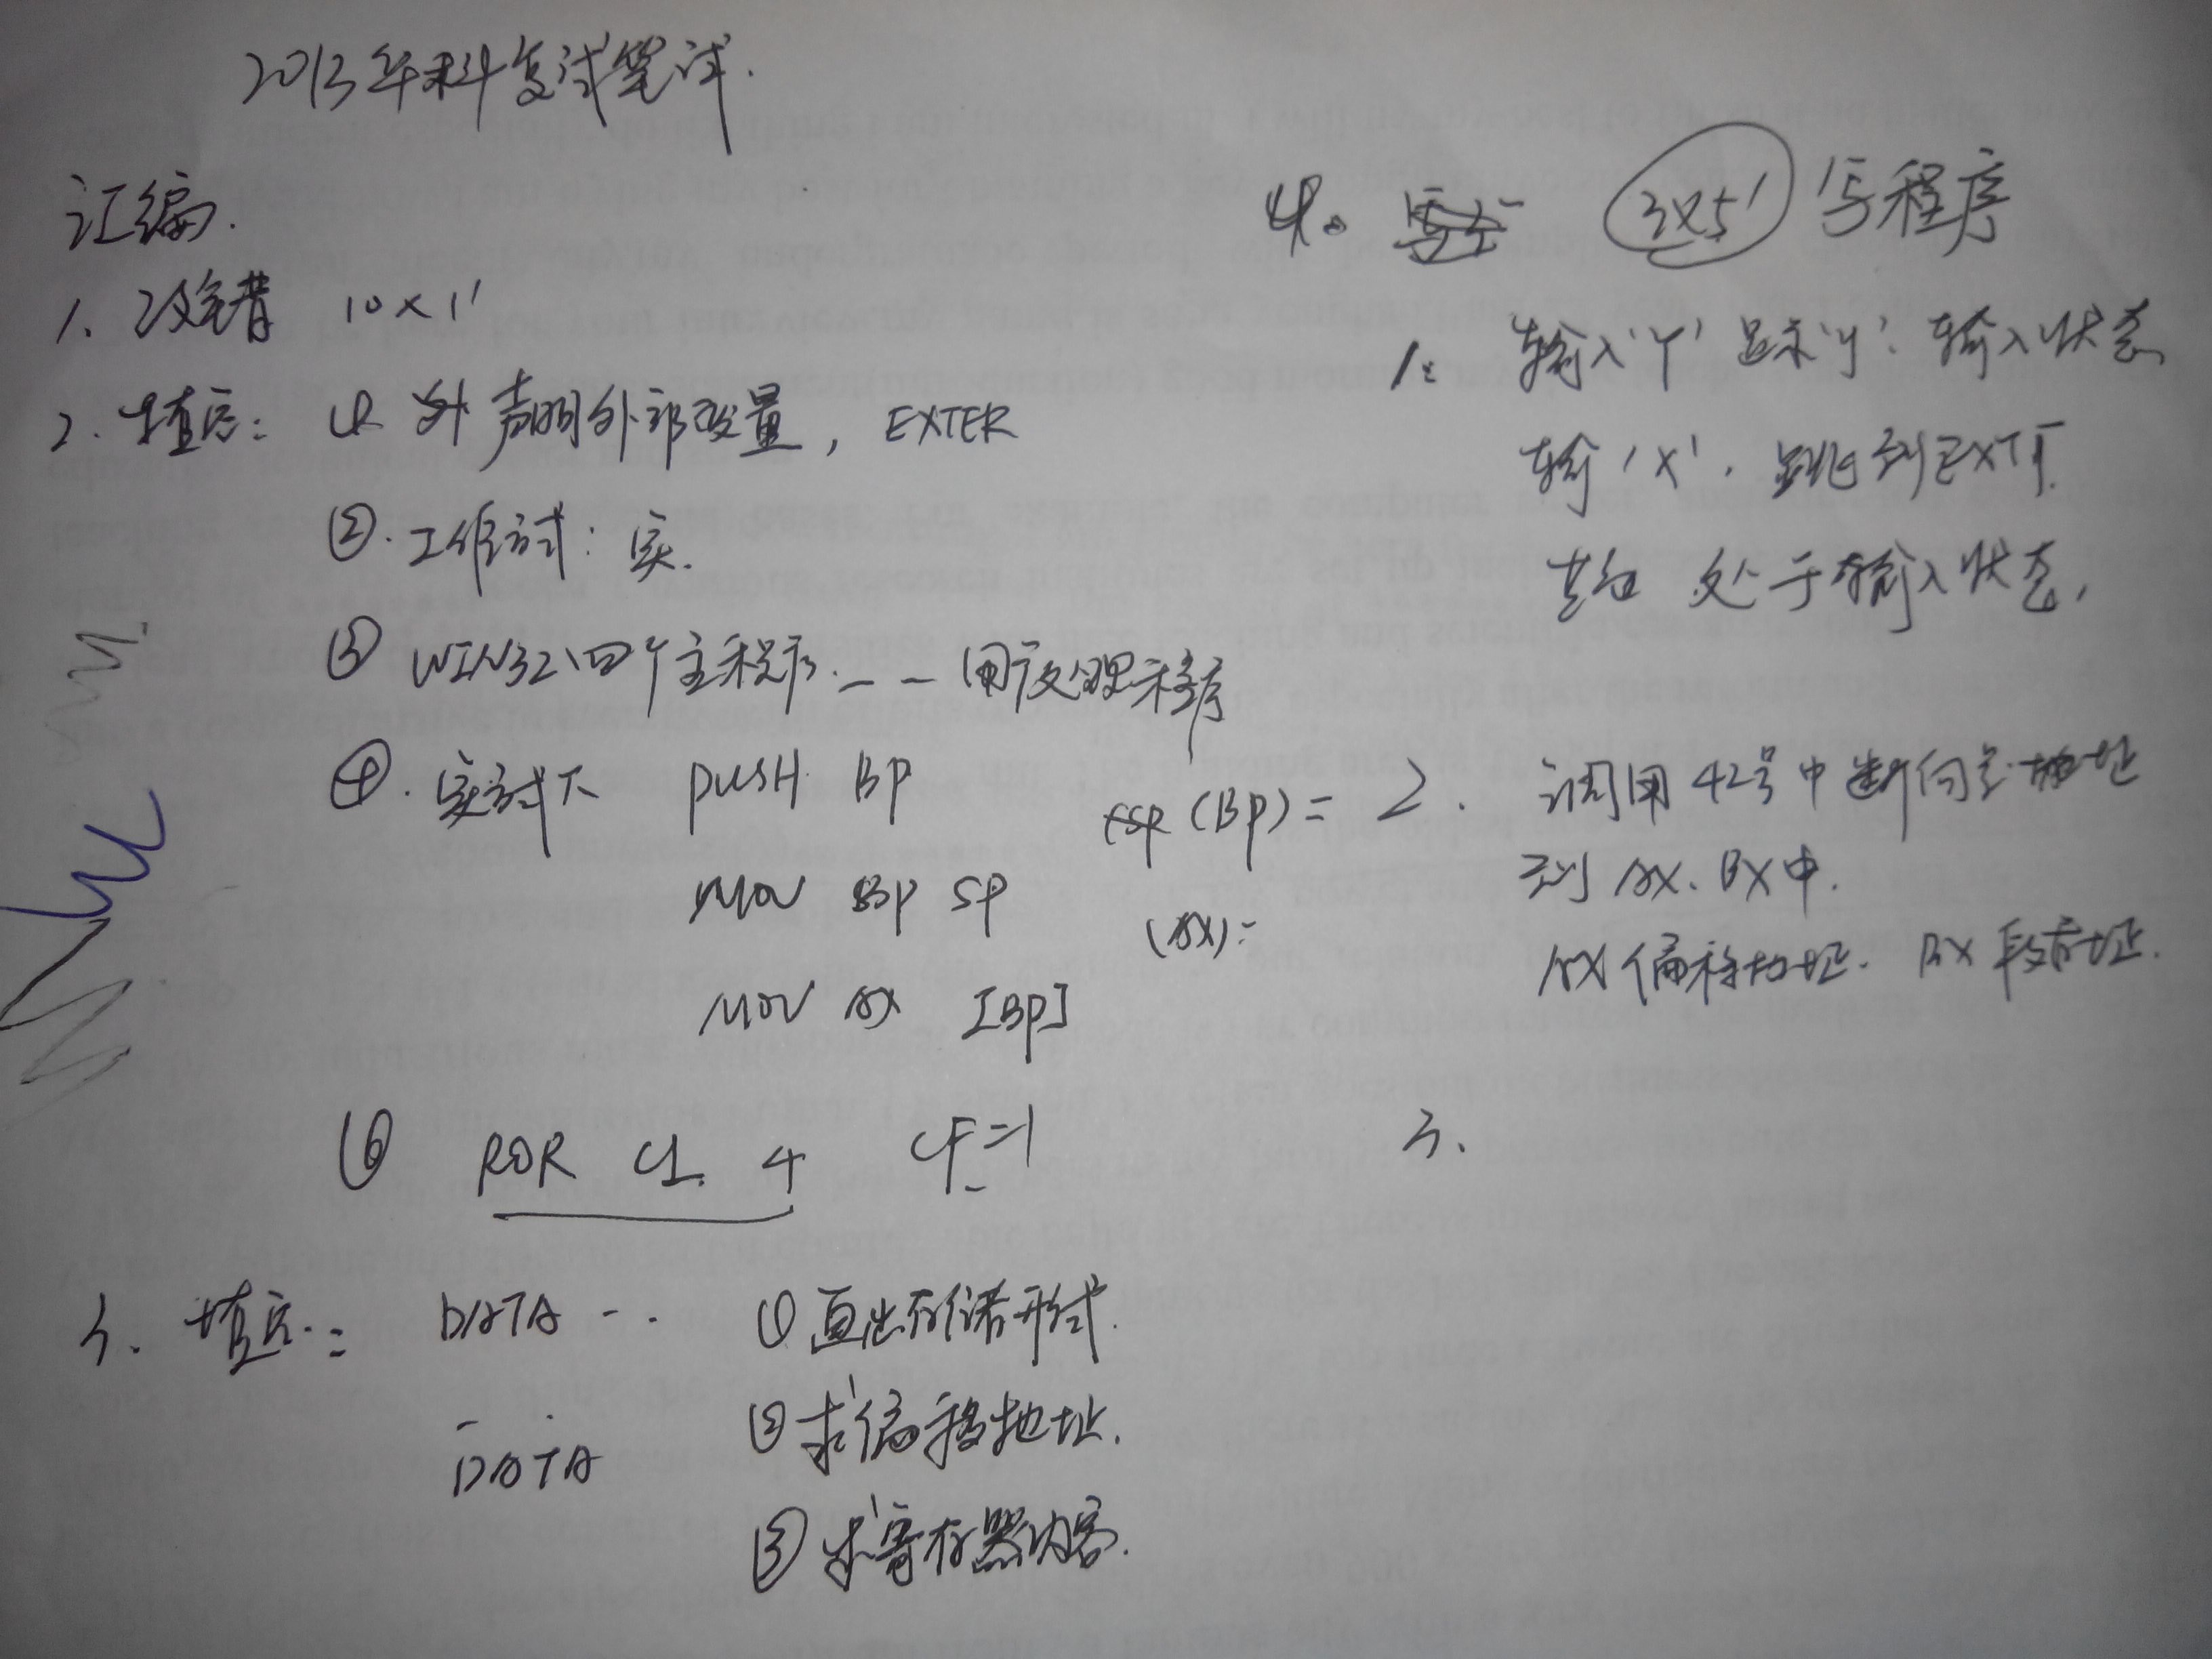 2013年科复试笔试.
汇编.
1. 改错 10×1'
2. 填空: ① 声明外部变量, EXTER
②. 工作方式: 实.
③ WIN32四个主程序. — — 用户处理程序
④. 实方式下 PUSH BP (BP) =
MOV BP SP (AX)=
MOV AX [BP]
⑥ ROR CL 4 CF=1
3. 填空: DATA -- ① 画出存储形式.
DATA ② 求偏移地址.
③ 求寄存器内容.
4. 3×5' 写程序
1: 输入'Y' 显示'y'. 输入状态
输'X'. 跳到EXIT.
其它 处于输入状态.
2. 调用42号中断向量地址
到AX. BX中.
AX偏移地址. BX段基址.
3.